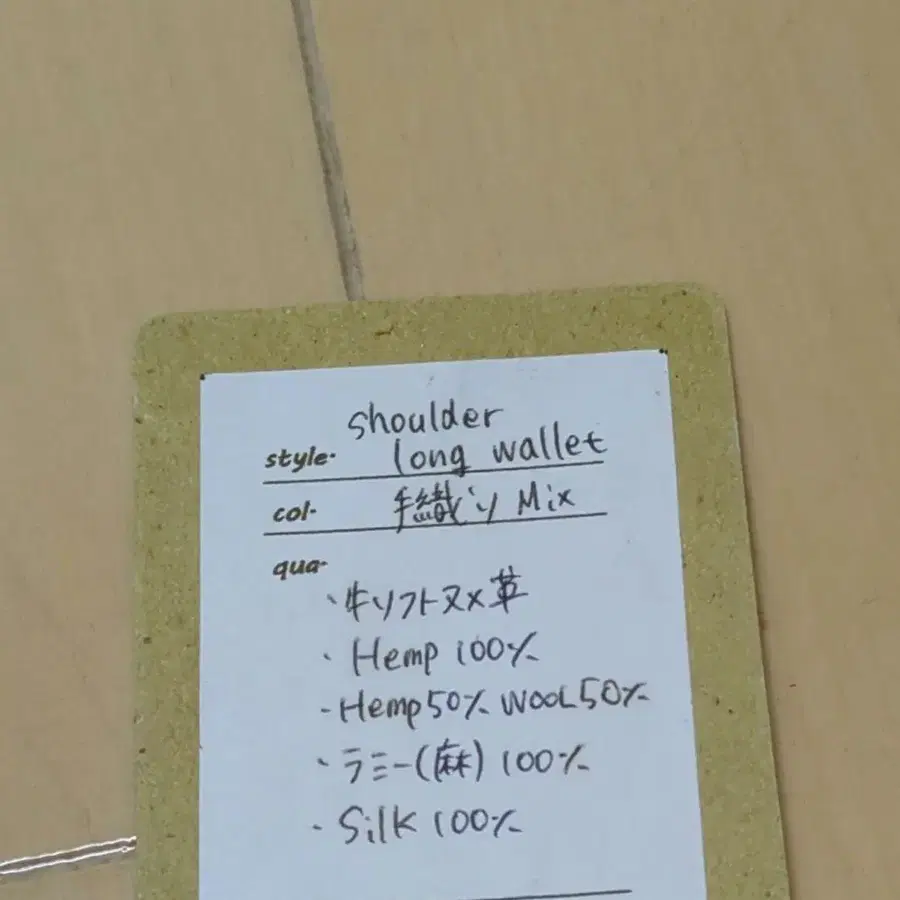 shoulder
style· long wallet
col· 手織り Mix
qua·
・牛ソフトヌメ革
・Hemp 100%
・Hemp50% WOOL50%
・ラミー(麻) 100%
・Silk 100%